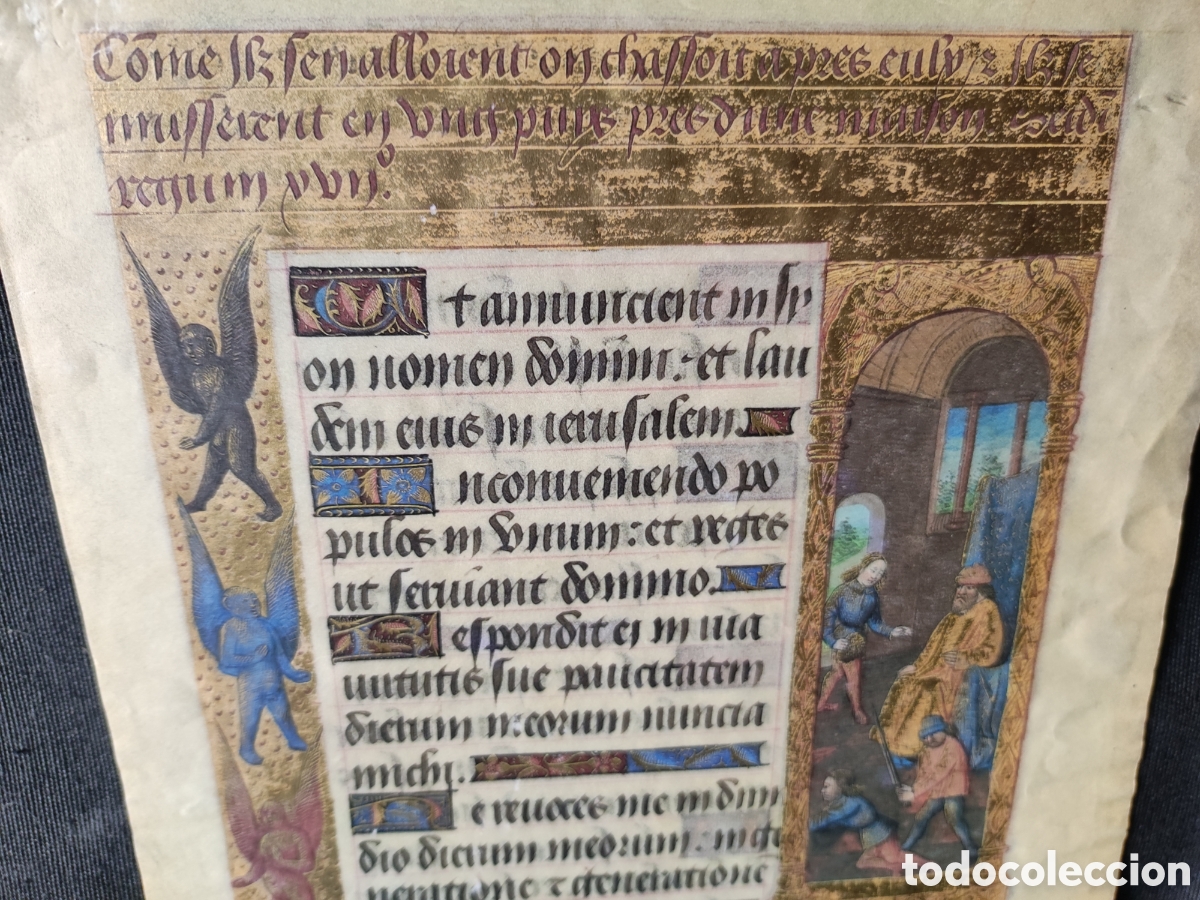 Cōme Ilz sen alloient on chassoit apres eulx z Ilz se
musserent en vung puys pres dune maison. Secūdi
regum xvij.º
Et annuncient in sy
on nomen domini: et lau
dem eius in ierusalem.
In conueniendo po
pulos in vnum: et reges
ut seruiant domino.
Respondit ei in uia
uirtutis sue paucitatem
dierum meorum nuncia
michi.
Ne reuoces me in dimi
dio dierum meorum: in ge
neratione z generatione
todocoleccion